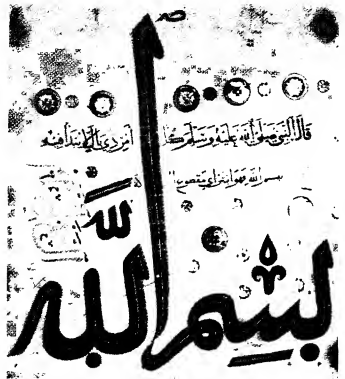 قال النبي صلى الله عليه وسلم كل امر ذي بال لم يبدأ فيه
بسم الله فهو ابتر اي مقصوص
بسم الله